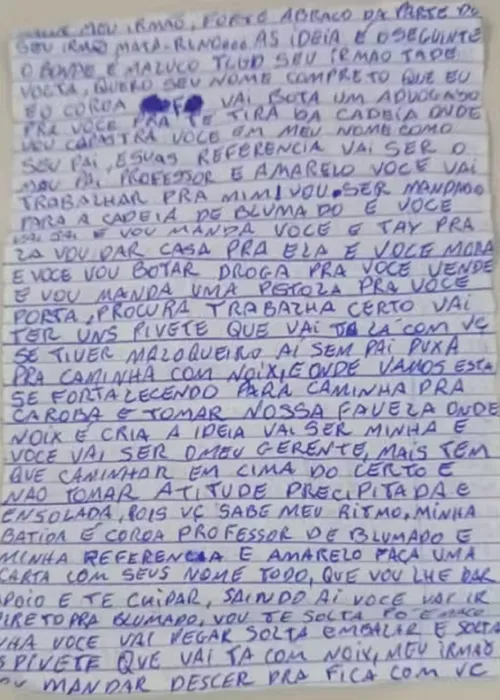 MEU IRMÃO, FORTE ABRAÇO DA PARTE DO
SEU IRMÃO MATA-RINDO... AS IDEIA E OSEGUINTE
O BONDE E MALUCO TLGD SEU IRMÃO TADE
VOLTA, QUERO SEU NOME COMPRETO QUE EU
EU COROA VAI BOTA UM ADVOGADO
PRA VOCE PRA TE TIRA DA CADEIA ONDE
VOU CADASTRA VOCE EM MEU NOME COMO
SEU PAI, ESUAS REFERENCIA VAI SER O
MEU PAI, PROFESSOR E AMARELO VOCE VAI
TRABALHAR PRA MIM, VOU SER MANDADO
PARA A CADEIA DE BLUMADO E VOCE
E VOU MANDA VOCE E TAY PRA
LA VOU DAR CASA PRA ELA E VOCE MORA
E VOCE VOU BOTAR DROGA PRA VOCE VENDE
E VOU MANDA UMA PISTOLA PRA VOCE
PORTA, PROCURA TRABALHA CERTO VAI
TER UNS PIVETE QUE VAI TA LÁ COM VC
SE TIVER MALOQUEIRO AÍ SEM PAI PUXA
PRA CAMINHA COM NOIX, E ONDE VAMOS ESTA
SE FORTALECENDO PARA CAMINHA PRA
CAROBA E TOMAR NOSSA FAVELA ONDE
NOIX É CRIA A IDEIA VAI SER MINHA E
VOCE VAI SER OMEU GERENTE, MAIS TEM
QUE CAMINHAR EM CIMA DO CERTO E
NÃO TOMAR ATITUDE PRECIPITADA E
ENSOLADA, POIS VC SABE MEU RITMO, MINHA
BATIDA É COROA PROFESSOR DE BLUMADO E
MINHA REFERENCIA E AMARELO FAÇA UMA
CARTA COM SEUS NOME TODO, QUE VOU LHE DAR
APOIO E TE CUIDAR, SAINDO AÍ VOCE VAI IR
DIRETO PRA BLUMADO, VOU TE SOLTA PÓ E MACO
NHA VOCE VAI PEGAR SOLTA EMBALAR E SOLTA
OS PIVETE QUE VAI TA COM NOIX, MEU IRMÃO
VOU MANDAR DESCER PRA FICA COM VC